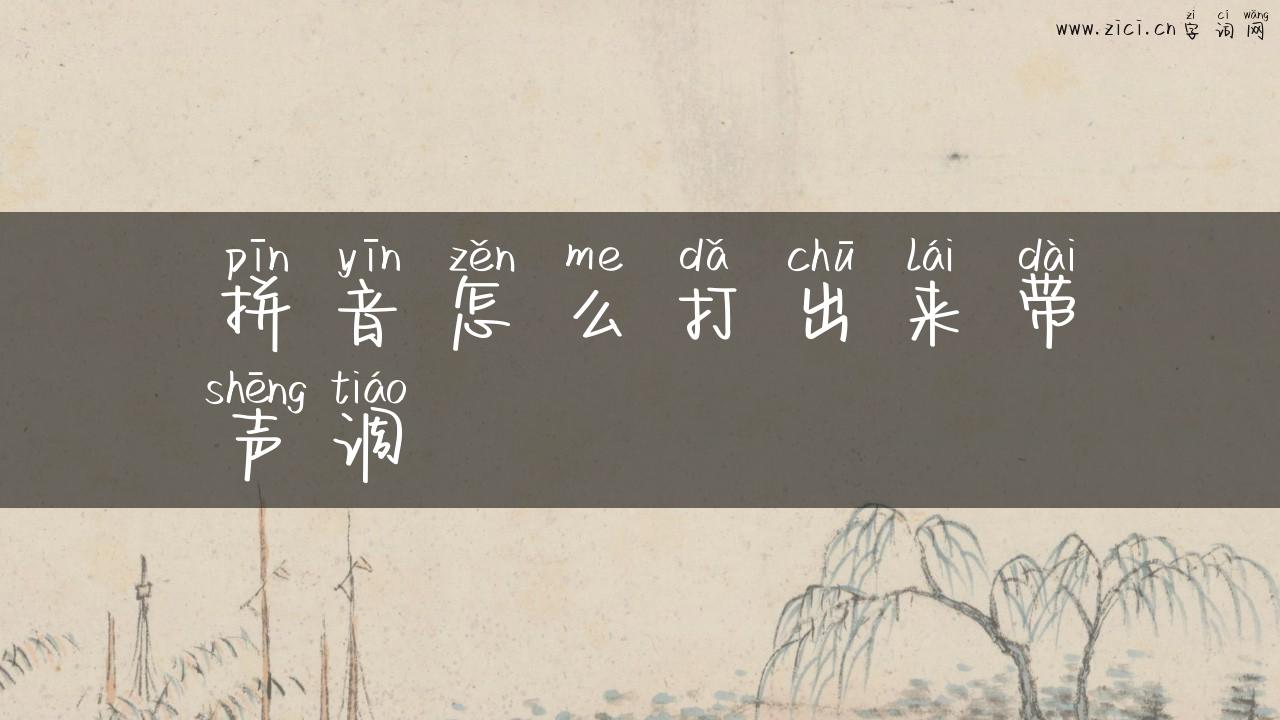 zì cí wǎng
www.zici.cn 字词网
pīn yīn zěn me dǎ chū lái dài
拼音怎么打出来带
shēng tiáo
声调